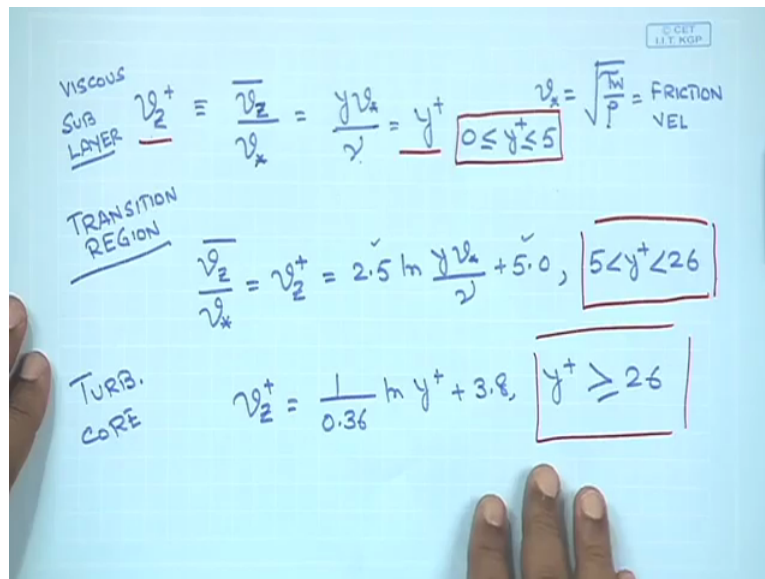 © CET
I.I.T. KGP
VISCOUS
SUB
LAYER
v_z⁺ ≡ v̅_z / v_* = y v_* / ν = y⁺ 0 ≤ y⁺ ≤ 5
v_* = √(τ_w / ρ) = FRICTION
VEL
TRANSITION
REGION
v̅_z / v_* = v_z⁺ = 2.5 ln y v_* / ν + 5.0, 5 < y⁺ < 26
TURB.
CORE
v_z⁺ = 1 / 0.36 ln y⁺ + 3.8, y⁺ ≥ 26